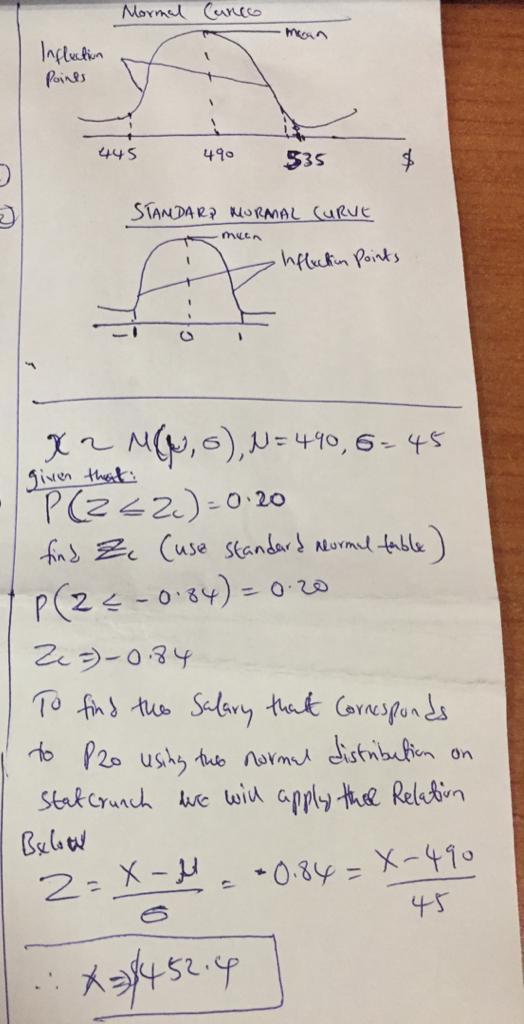 Normal Curves
mean
Inflection
Points
445 490 535 $
STANDARD NORMAL CURVE
mean
Inflection Points
-1 0 1
x ~ N(μ, σ), μ = 490, σ = 45
given that:
P(Z ≤ Zc) = 0.20
find Zc (use standard normal table)
P(Z ≤ -0.84) = 0.20
Zc ⇒ -0.84
To find the Salary that Corresponds
to P20 using the normal distribution on
Statcrunch we will apply the Relation
Below
Z = (X - μ)/σ = -0.84 = (X - 490)/45
∴ X ⇒ $452.4